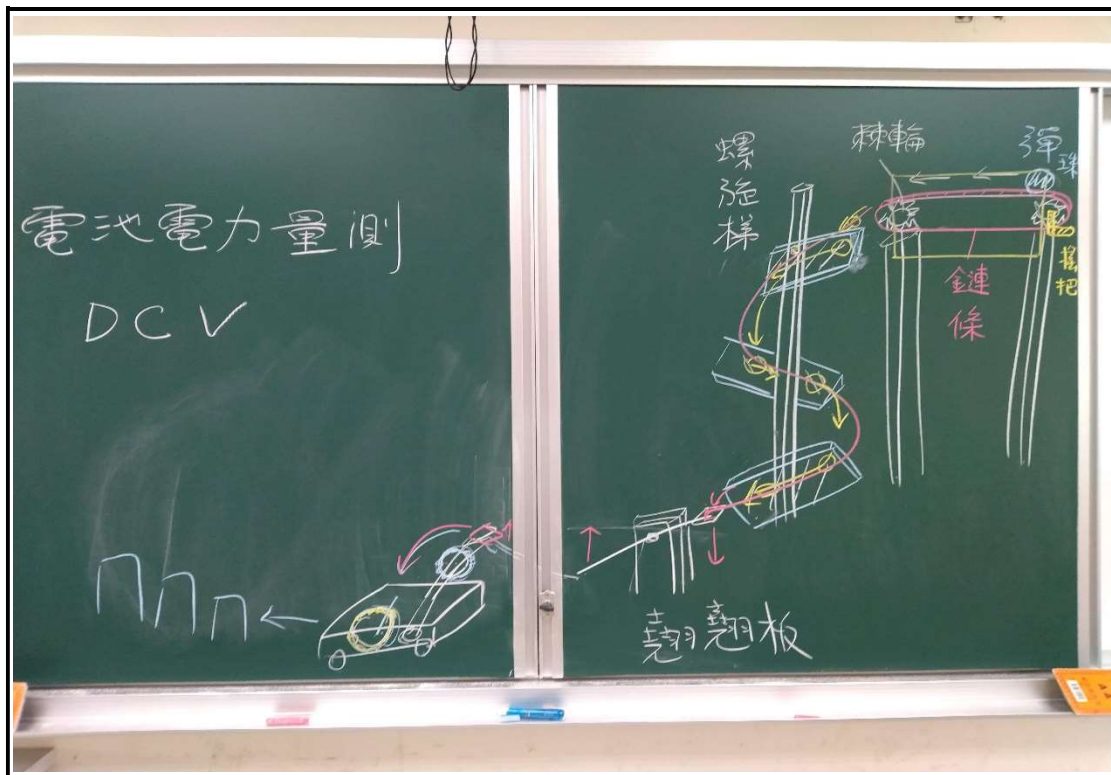 電池電力量測
DCV
螺旋梯
棘輪
彈珠
搖把
鏈條
翹翹板